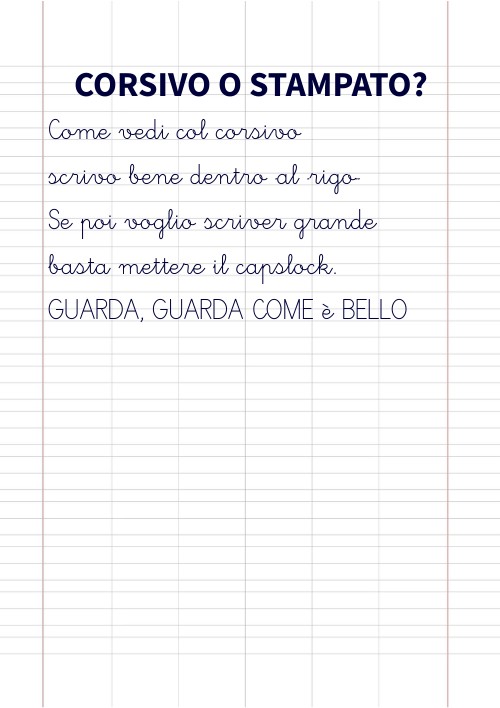 CORSIVO O STAMPATO?
Come vedi col corsivo
scrivo bene dentro al rigo
Se poi voglio scriver grande
basta mettere il capslock.
GUARDA, GUARDA COME è BELLO